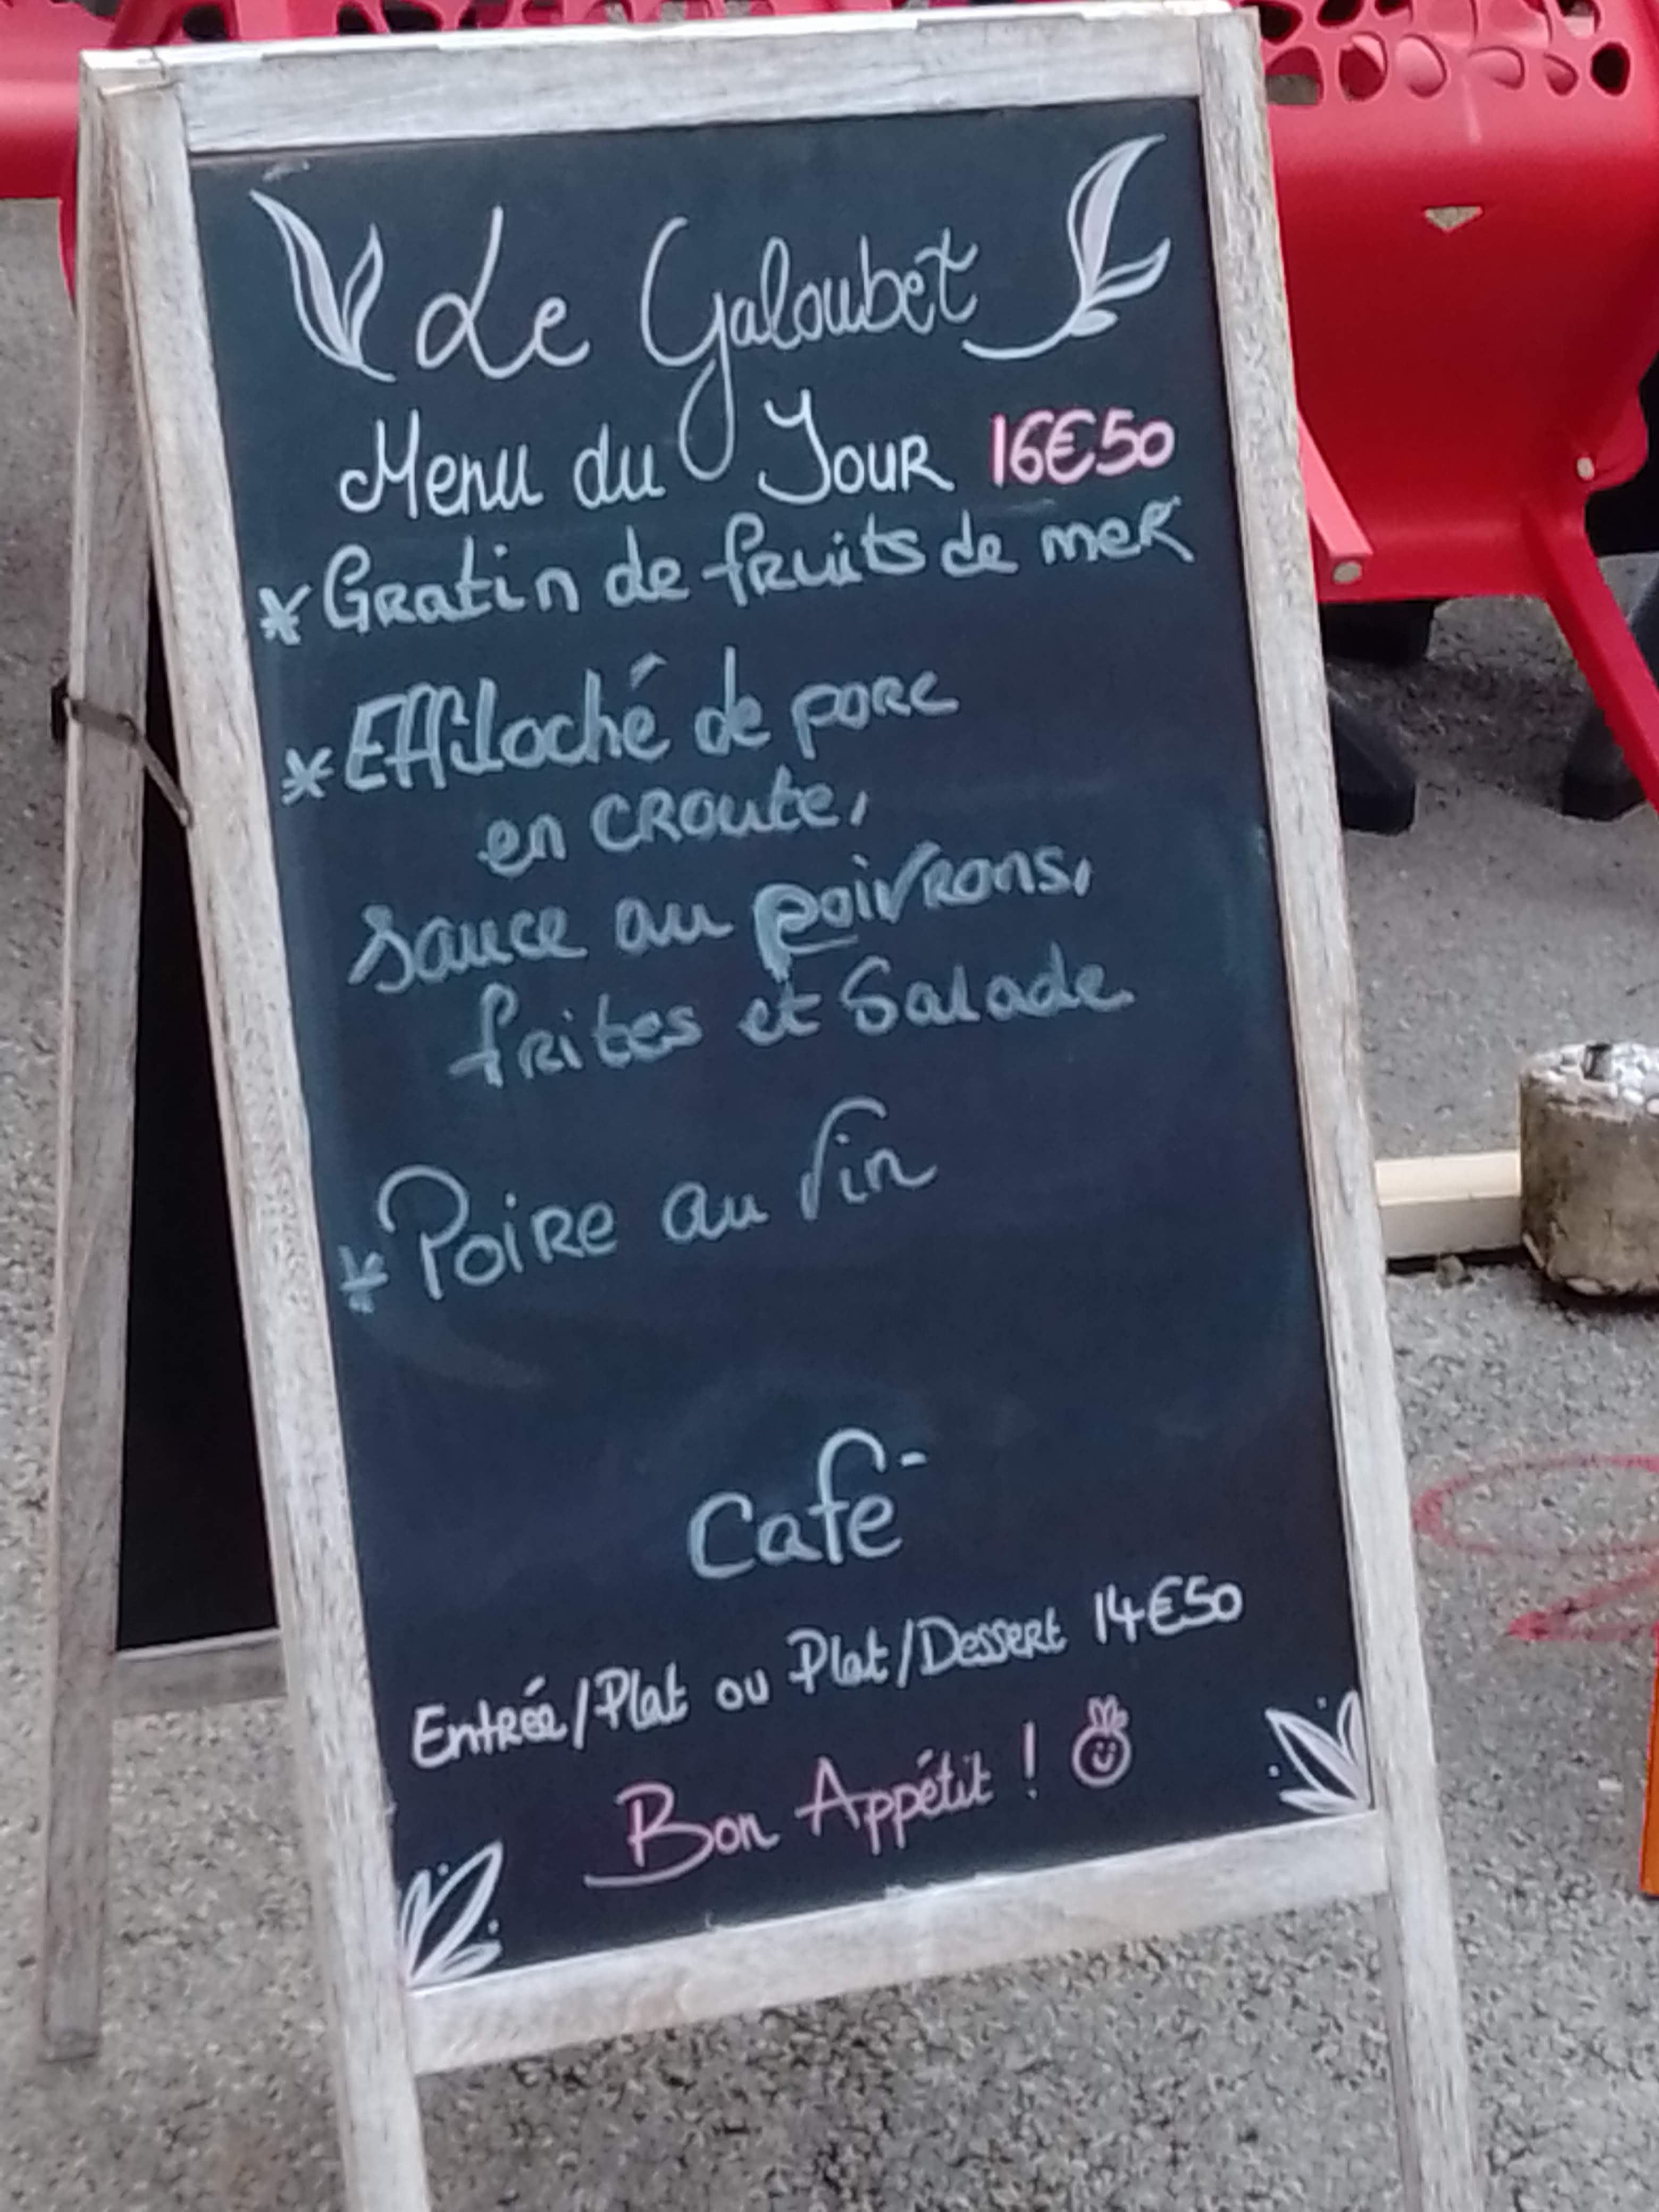 Le Galoubet
Menu du Jour 16€50
* Gratin de fruits de mer
* Effiloché de porc
en croute,
sauce au poivrons,
frites et Salade
* Poire au Vin
Café
Entrée/Plat ou Plat/Dessert 14€50
Bon Appétit !